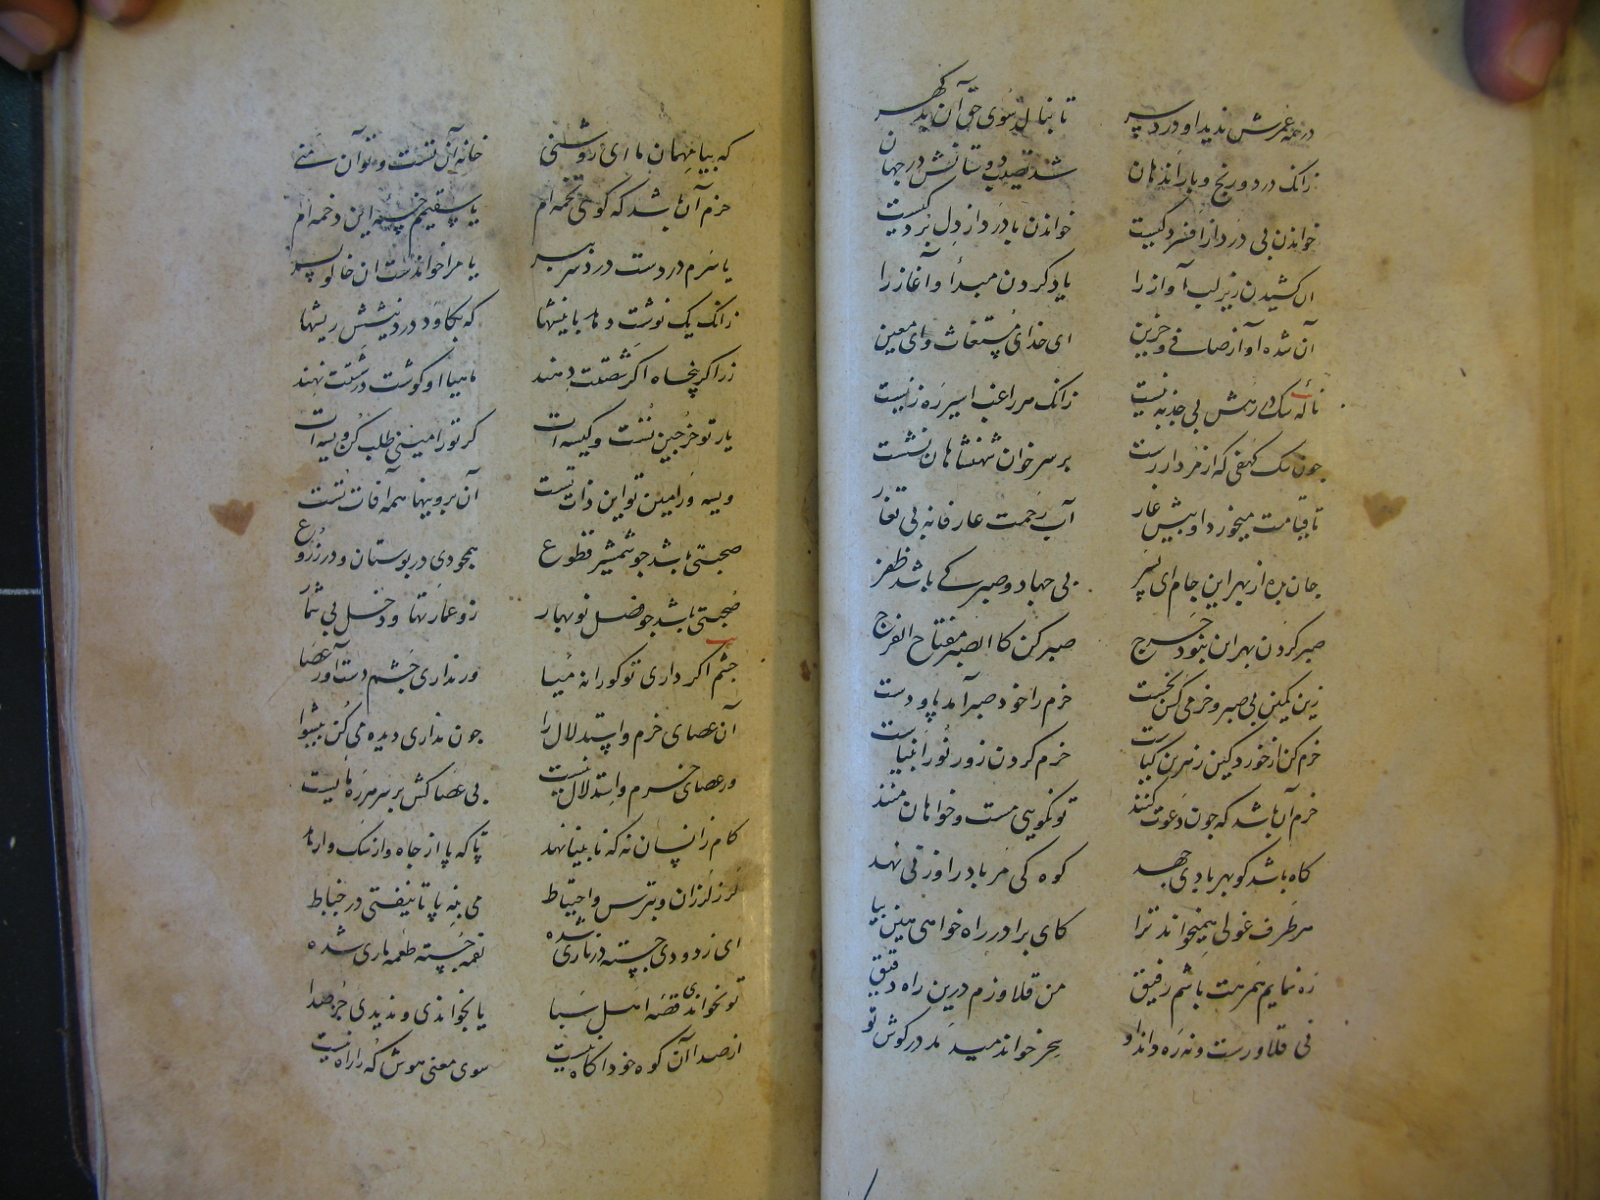 در همه عمرش ندید او درد سر تا بنالد سوی حق آن بدگهر
زانک درد و رنج و بار اندهان شد نصیب دوستانش در جهان
خواندن بی درد از افسردگیست خواندن با درد از دل بردگیست
آن کشیدن زیر لب آواز را یاد کردن مبدأ و آغاز را
آن شده آواز صافی و حزین ای خدای مستغاث و ای معین
نالهٔ سگ در رهش بی جذبه نیست زانک هر راغب اسیر ره زنیست
چون سگ کهفی که از مردار رست بر سر خوان شهنشاهان نشست
تا قیامت میخورد او پیش غار آب رحمت عارفانه بی تغار
جان بده از بهر این جام ای پسر بی جهاد و صبر کی باشد ظفر
صبر کردن بهر این نبود حرج صبر کن کالصبر مفتاح الفرج
زین کمین بی صبر و حزمی کس نجست حزم را خود صبر آمد پا و دست
حزم کن از خورد کین زهرین گیاست حزم کردن زور و نور انبیاست
حزم آن باشد که چون دعوت کنند تو نگویی مست و خواهان منند
کاه باشد کو بهر بادی جهد کوه کی مر باد را وزنی نهد
هر طرف غولی همیخواند ترا کای برادر راه خواهی هین بیا
ره نمایم همرهت باشم رفیق من قلاوزم درین راه دقیق
نی قلاوزست و نه ره داند او
که بیا مهمان ما ای روشنی خانه آن تست و تو آن منی
حزم آن باشد که گویی تخمه ام یا سقیمم خستهٔ این دخمه ام
یا سرم دردست درد سر ببر یا مرا خواندست آن خالو پسر
زانک یک نوشت دهد با نیشها که بکاود در دنیشش ریشها
زر اگر پنجاه اگر شصتت دهند ماهیا او گوشت در شستت نهند
یار تو خرجین تست و کیسه ات گر تو رامینی طلب کن ویسه ات
ویسه و رامین تو این ذات تست آن برونیها همه آفات تست
صحبتی باشد چو شمشیر قطوع همچو دی در بوستان و در زروع
صحبتی باشد چو فصل نوبهار زو عمارتها و دخل بی شمار
چشم اگر داری تو کورانه میا ور نداری چشم دست آور عصا
آن عصای حزم و استدلال را چون نداری دیده می کن پیشوا
ور عصای حزم و استدلال نیست بی عصاکش بر سر هر ره مایست
گام زانسان نه که نابینا نهد تا که پا از چاه و از سگ وارهد
لرز لرزان و بترس و احتیاط می بنه پا تا نیفتی در خباط
ای ز دودی جسته در ناری شده لقمه جسته طعمه ماری شده
تو نخواندی قصهٔ اهل سبا یا بخواندی و ندیدی جز صدا
از صدا آن کوه خود آگاه نیست سوی معنی هوش که را راه نیست